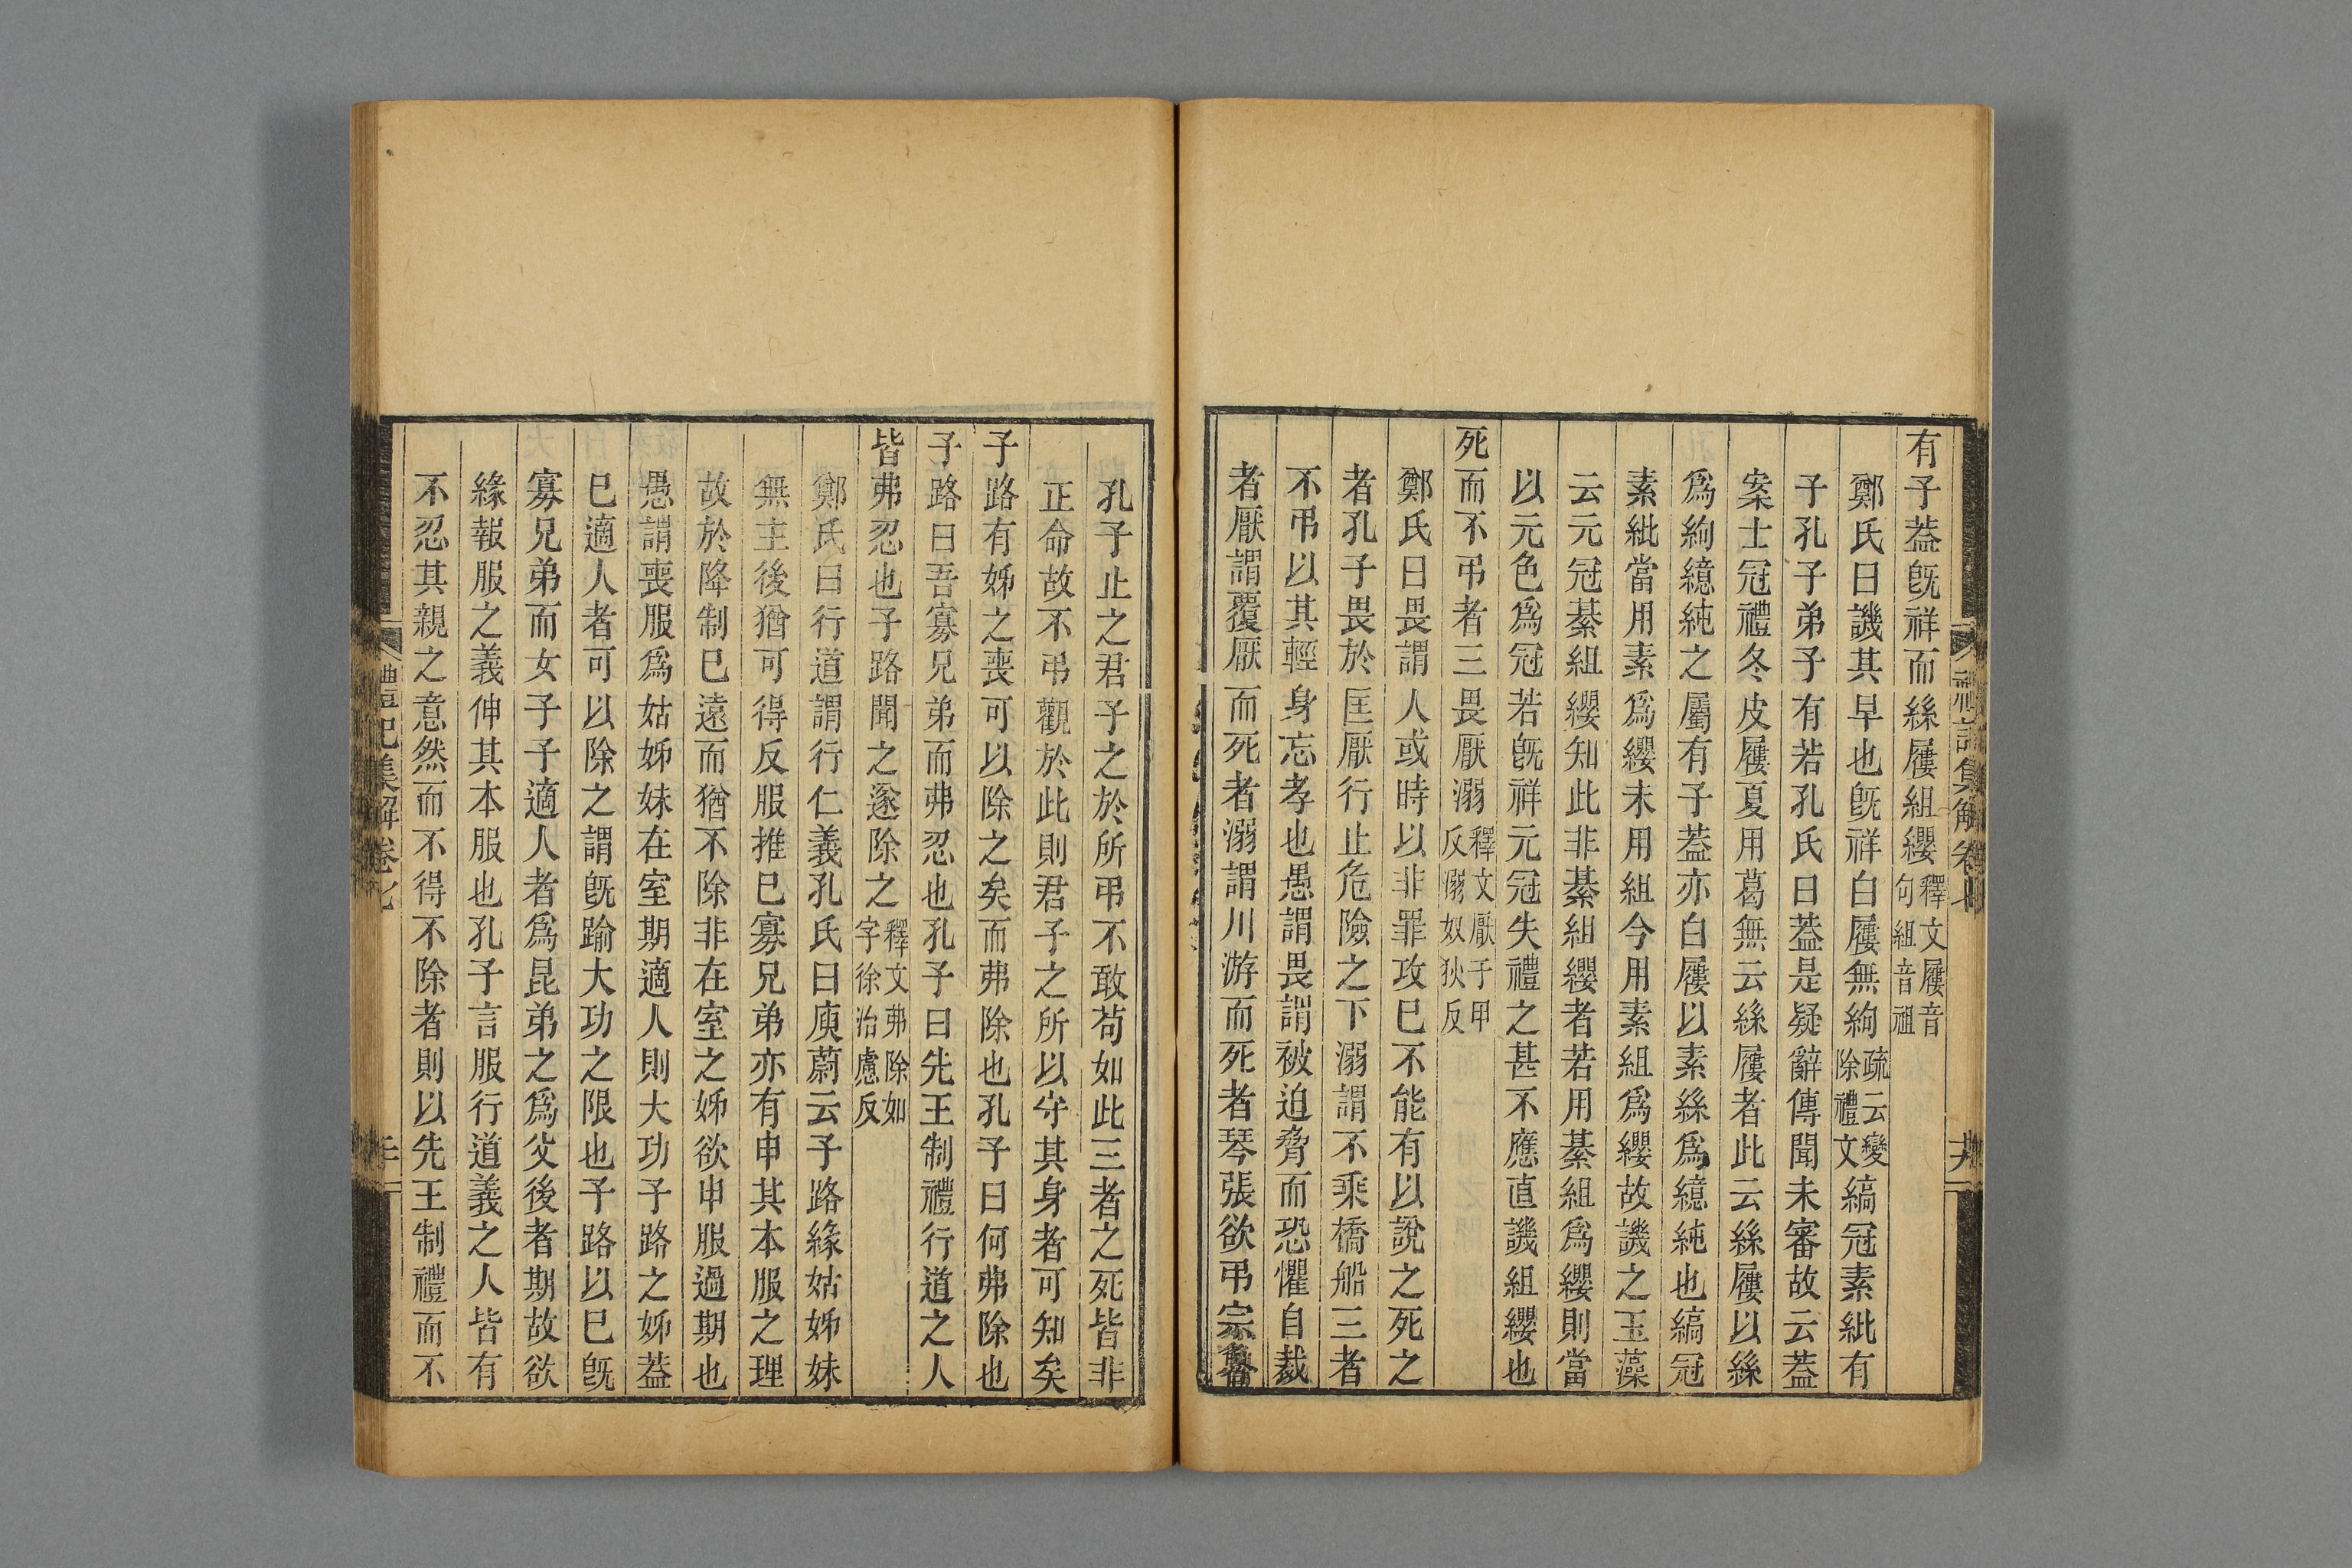 有子葢旣祥而絲屨組纓釋文屨音句組音祖
鄭氏曰譏其早也旣祥白屨無絇疏云變除禮文縞冠素紕有
子孔子弟子有若孔氏曰葢是疑辭傳聞未審故云葢
案士冠禮冬皮屨夏用葛無云絲屨者此云絲屨以絲
爲絇繶純之屬有子葢亦白屨以素絲爲繶純也縞冠
素紕當用素爲纓未用組今用素組爲纓故譏之玉藻
云元冠綦組纓知此非綦組纓者若用綦組爲纓則當
以元色爲冠若旣祥元冠失禮之甚不應直譏組纓也
死而不弔者三畏厭溺釋文厭于甲反溺奴狄反
鄭氏曰畏謂人或時以非罪攻已不能有以說之死之
者孔子畏於匡厭行止危險之下溺謂不乘橋船三者
不弔以其輕身忘孝也愚謂畏謂被迫脅而恐懼自裁
者厭謂覆厭而死者溺謂川游而死者琴張欲弔宗魯
禮記集解卷七
孔子止之君子之於所弔不敢苟如此三者之死皆非
正命故不弔觀於此則君子之所以守其身者可知矣
子路有姊之喪可以除之矣而弗除也孔子曰何弗除也
子路曰吾寡兄弟而弗忍也孔子曰先王制禮行道之人
皆弗忍也子路聞之遂除之釋文弗除如字徐治慮反
鄭氏曰行道謂行仁義孔氏曰庾蔚云子路緣姑姊妹
無主後猶可得反服推已寡兄弟亦有申其本服之理
故於降制已遠而猶不除非在室之姊欲申服過期也
愚謂喪服爲姑姊妹在室期適人則大功子路之姊葢
已適人者可以除之謂旣踰大功之限也子路以已旣
寡兄弟而女子子適人者爲昆弟之爲父後者期故欲
緣報服之義伸其本服也孔子言服行道義之人皆有
不忍其親之意然而不得不除者則以先王制禮而不
禮記集解卷七